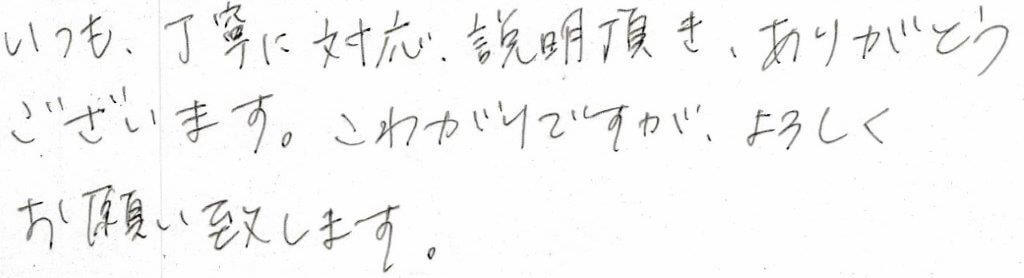 いつも、丁寧に対応、説明頂き、ありがとう
ございます。こわがりですが、よろしく
お願い致します。